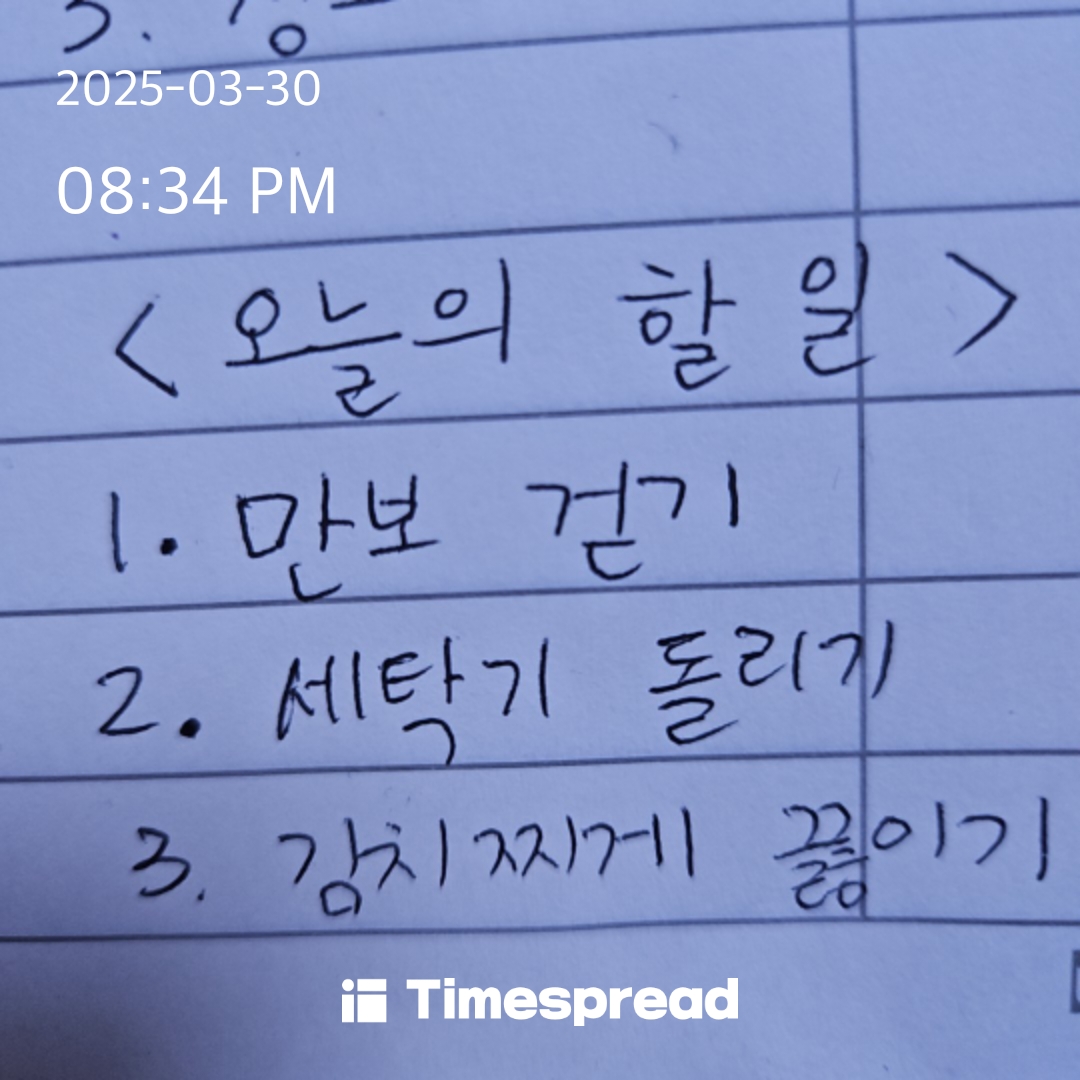 3.
2025-03-30
08:34 PM
<오늘의 할 일>
1. 만보 걷기
2. 세탁기 돌리기
3. 김치찌게 끓이기
Timespread